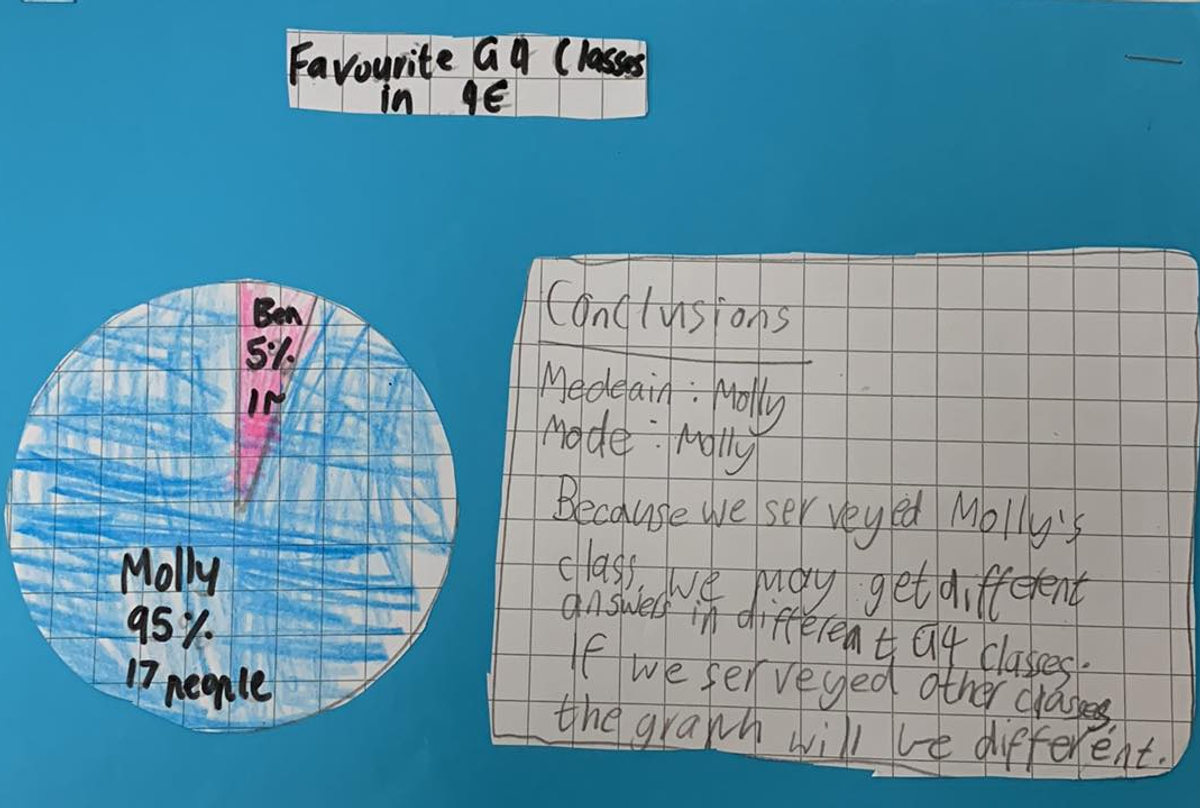 Favourite G4 Classes
in 4E
Ben
5%
Molly
95%
17 people
Conclusions
Medeain: Molly
Mode: Molly
Because we serveyed Molly's
class, we may get different
answers in different G4 classes.
If we serveyed other classes,
the graph will be different.